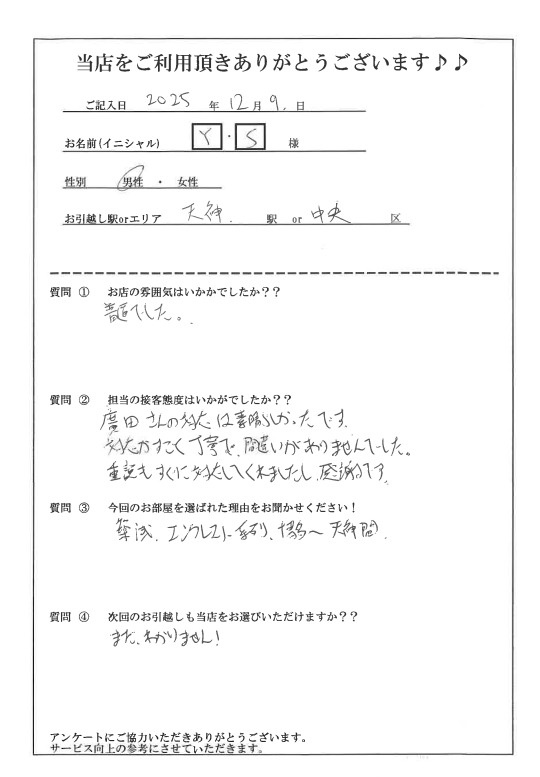 当店をご利用頂きありがとうございます♪♪
ご記入日 2025 年 12 月 9. 日
お名前(イニシャル) Y ・ S 様
性別 男性 ・ 女性
お引越し駅orエリア 天神. 駅 or 中央 区
質問 ① お店の雰囲気はいかかでしたか??
でした。
質問 ② 担当の接客態度はいかがでしたか??
廣田さんの対応は素晴らしかったです.
対応がすごく丁寧で、間違いがありませんでした。
電話もすぐに対応してくれましたし、感謝です
質問 ③ 今回のお部屋を選ばれた理由をお聞かせください!
築浅、エンクレスト系列、博多〜天神間.
質問 ④ 次回のお引越しも当店をお選びいただけますか??
まだ、わかりません!
アンケートにご協力いただきありがとうございます。
サービス向上の参考にさせていただきます。